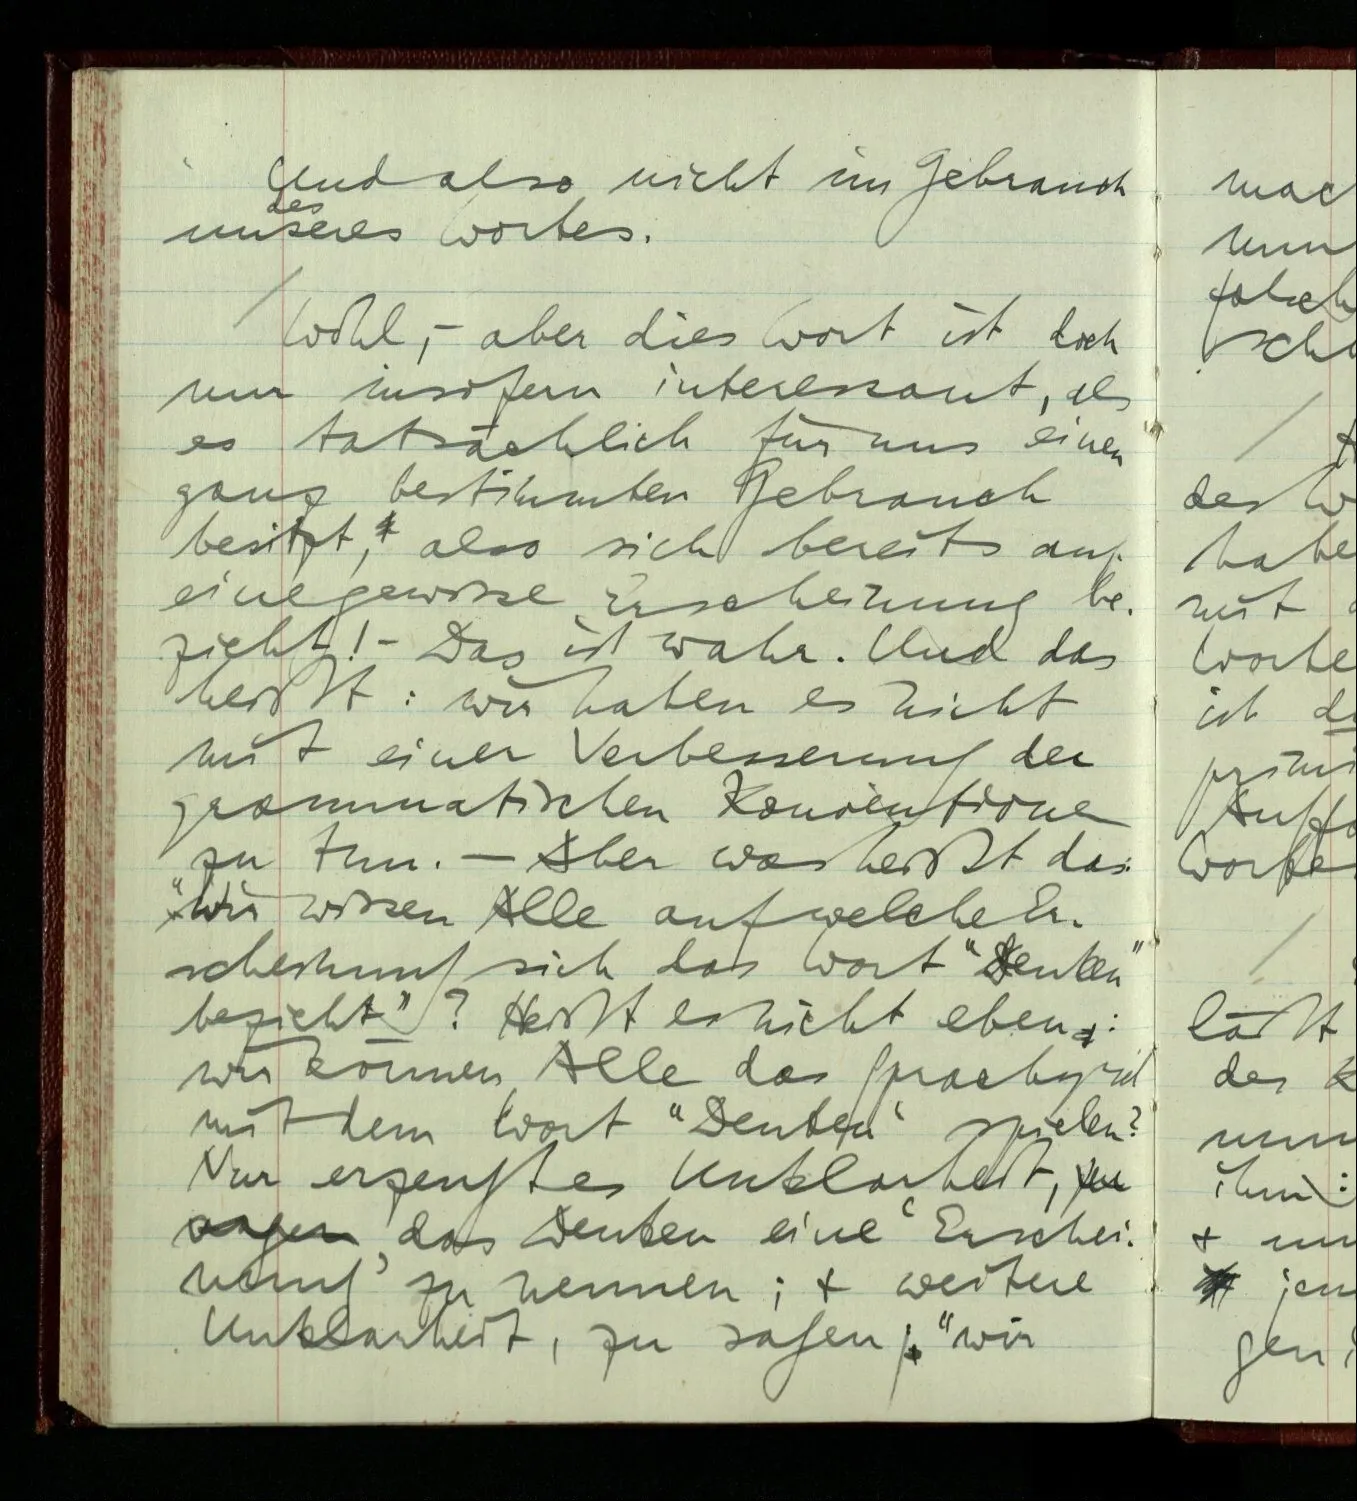 Und also nicht im Gebrauch
des
unseres Wortes.
/
Wohl, – aber dies Wort ist doch
nur insofern interessant, als
es tatsächlich für uns einen
ganz bestimmten Gebrauch
besitzt, also sich bereits auf
eine gewisse Erscheinung be-
zieht! – Das ist wahr. Und das
heißt: wir haben es nicht
mit einer Verbesserung der
grammatischen Konventione
zu tun. – Aber was heißt das:
"Wir wissen Alle auf welche Er-
scheinung sich das Wort "Denken"
bezieht"? Heißt es nicht eben:
wir können Alle das Sprachspiel
mit dem Wort "Denken" spielen?
Nur erzeugt es Unklarheit, zu
sagen, das Denken eine 'Erschei-
nung' zu nennen; + weitere
Unklarheit, zu sagen, "wir
mac
nun
falsch
/
des W
habe
mit
Worte
ist
Worte
/
läßt
der K
ihm:
+
gen